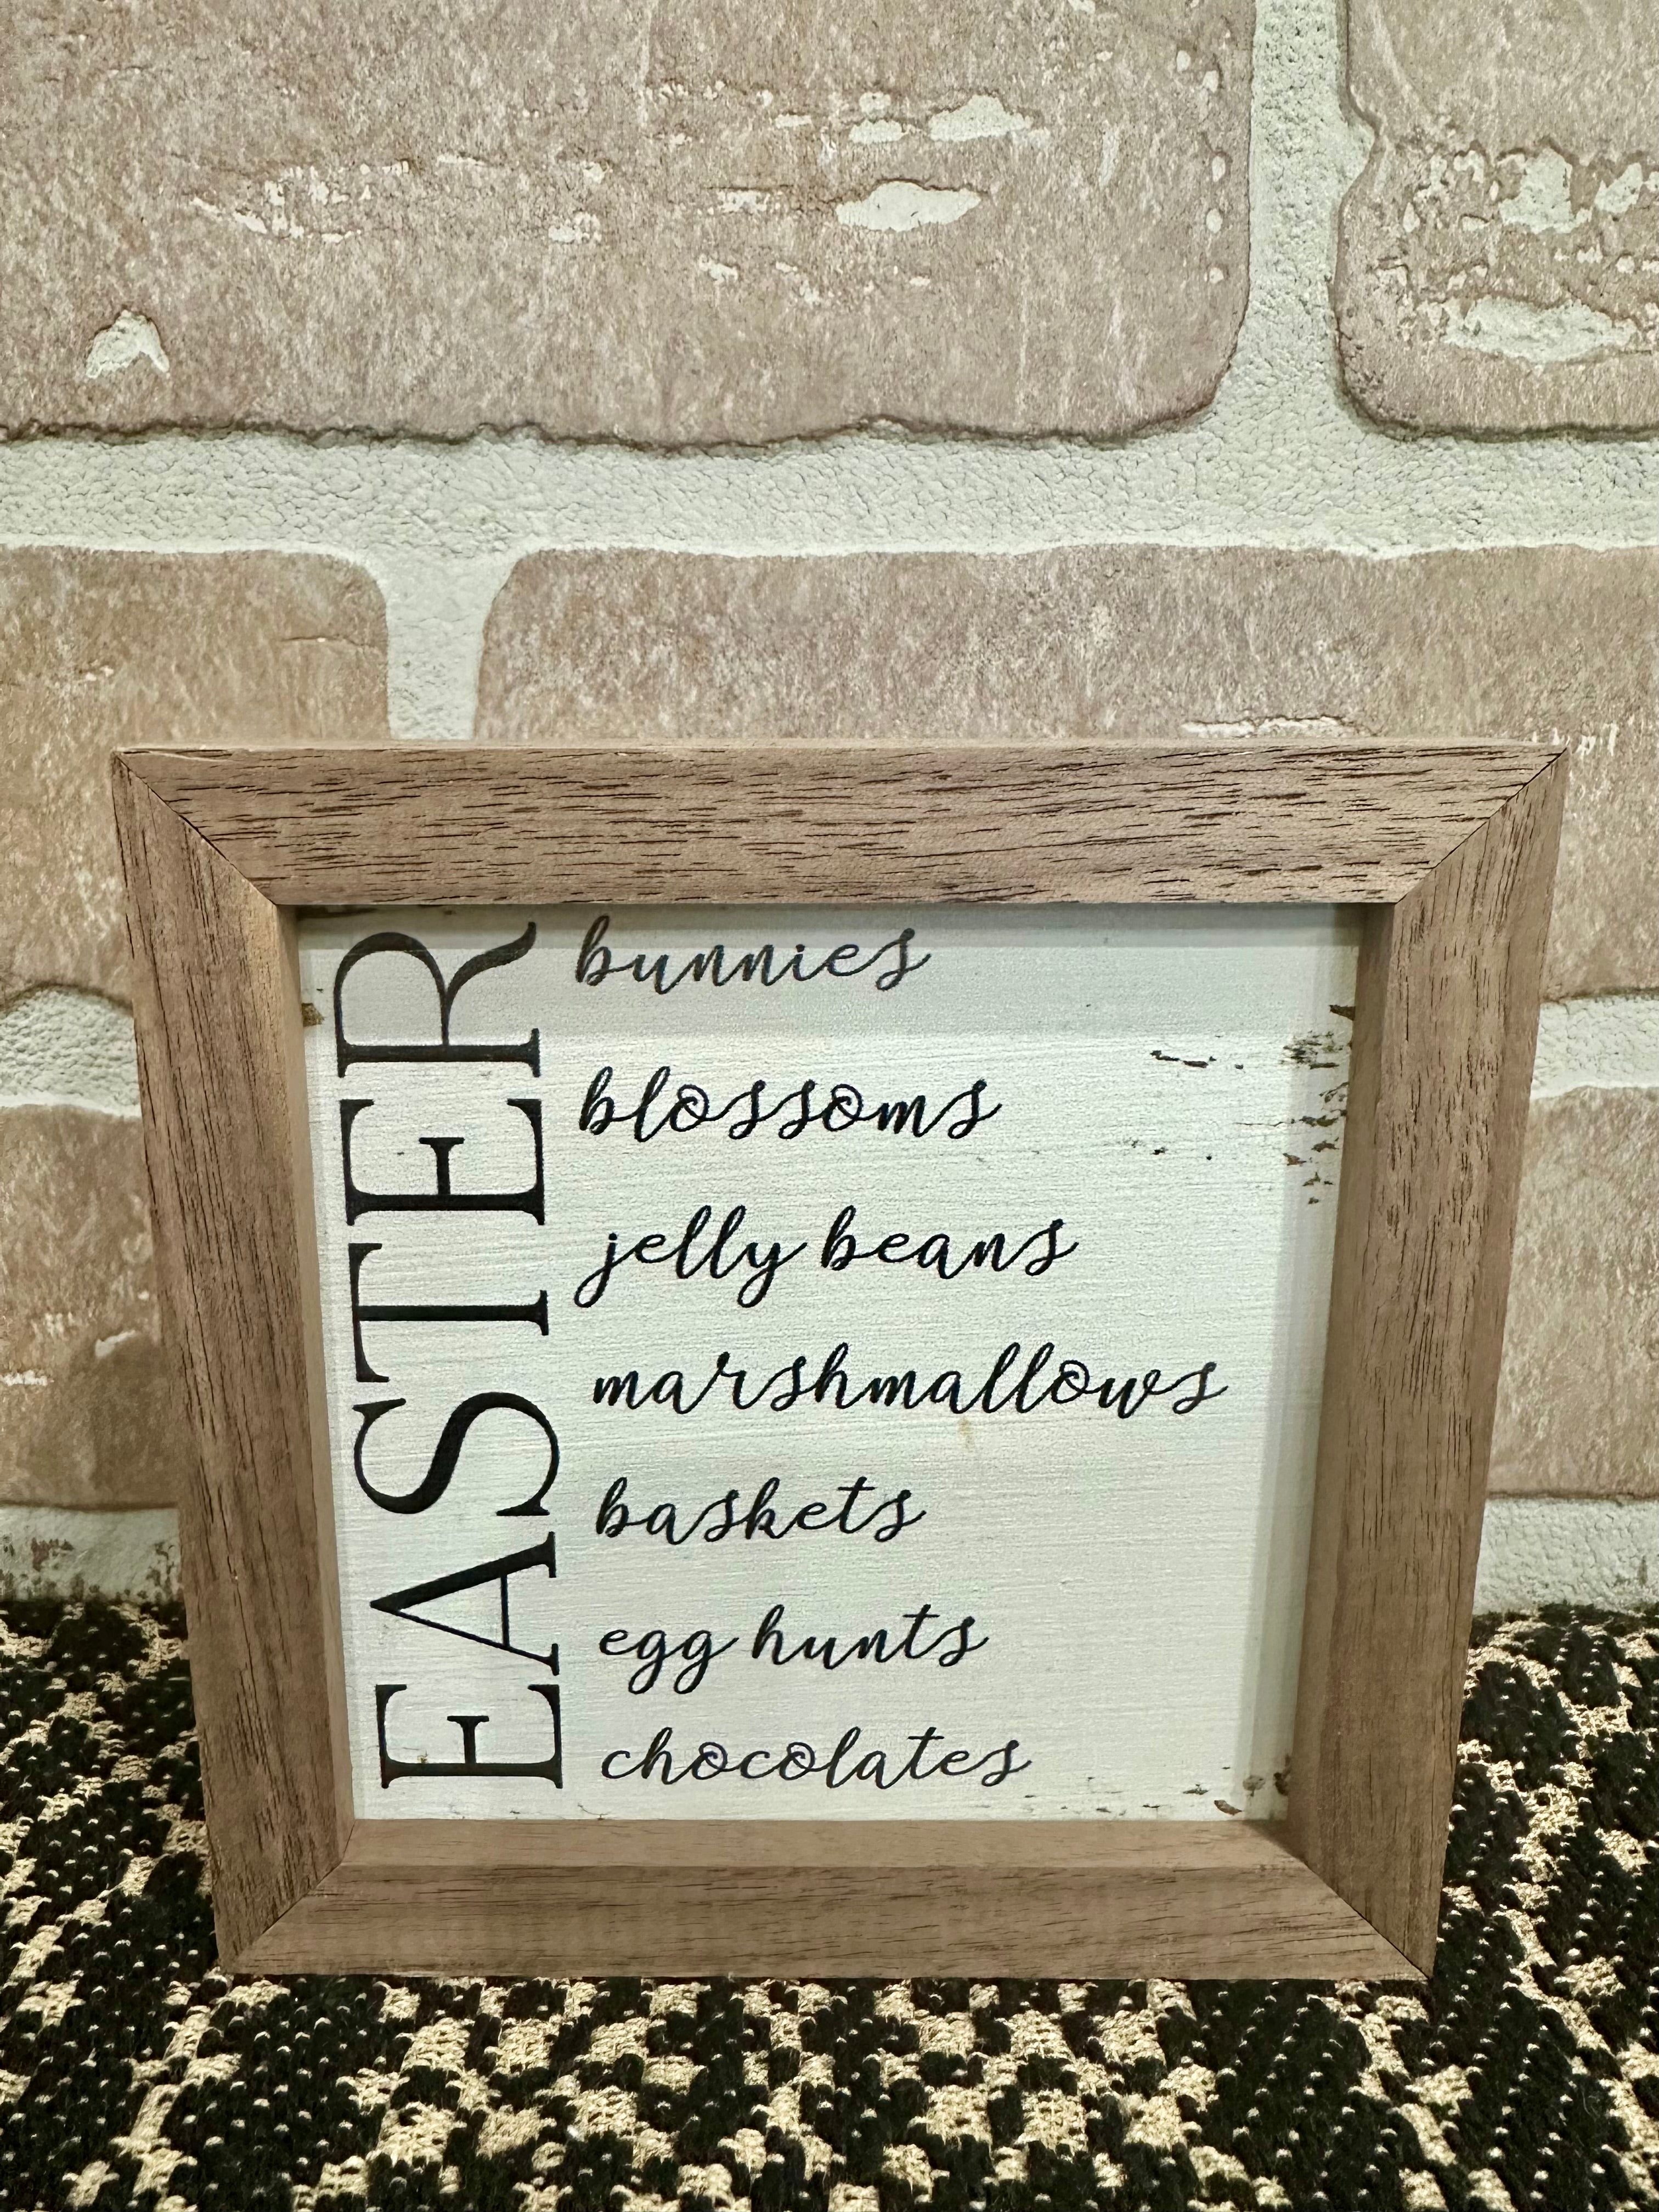 EASTER
bunnies
blossoms
jelly beans
marshmallows
baskets
egg hunts
chocolates